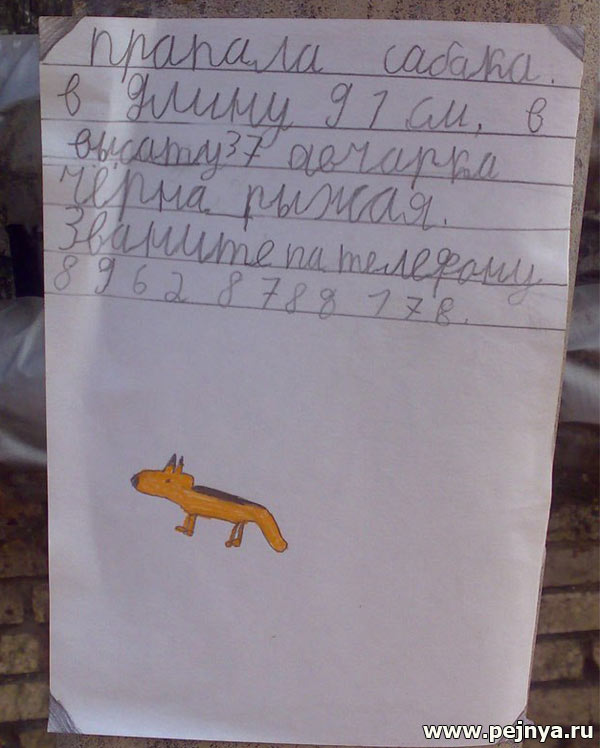 прапала сабака.
в длину 91 см, в
высату 37 авчарка
чёрна рыжая.
Званите па телефону
8 962 8788 178.
www.pejnya.ru